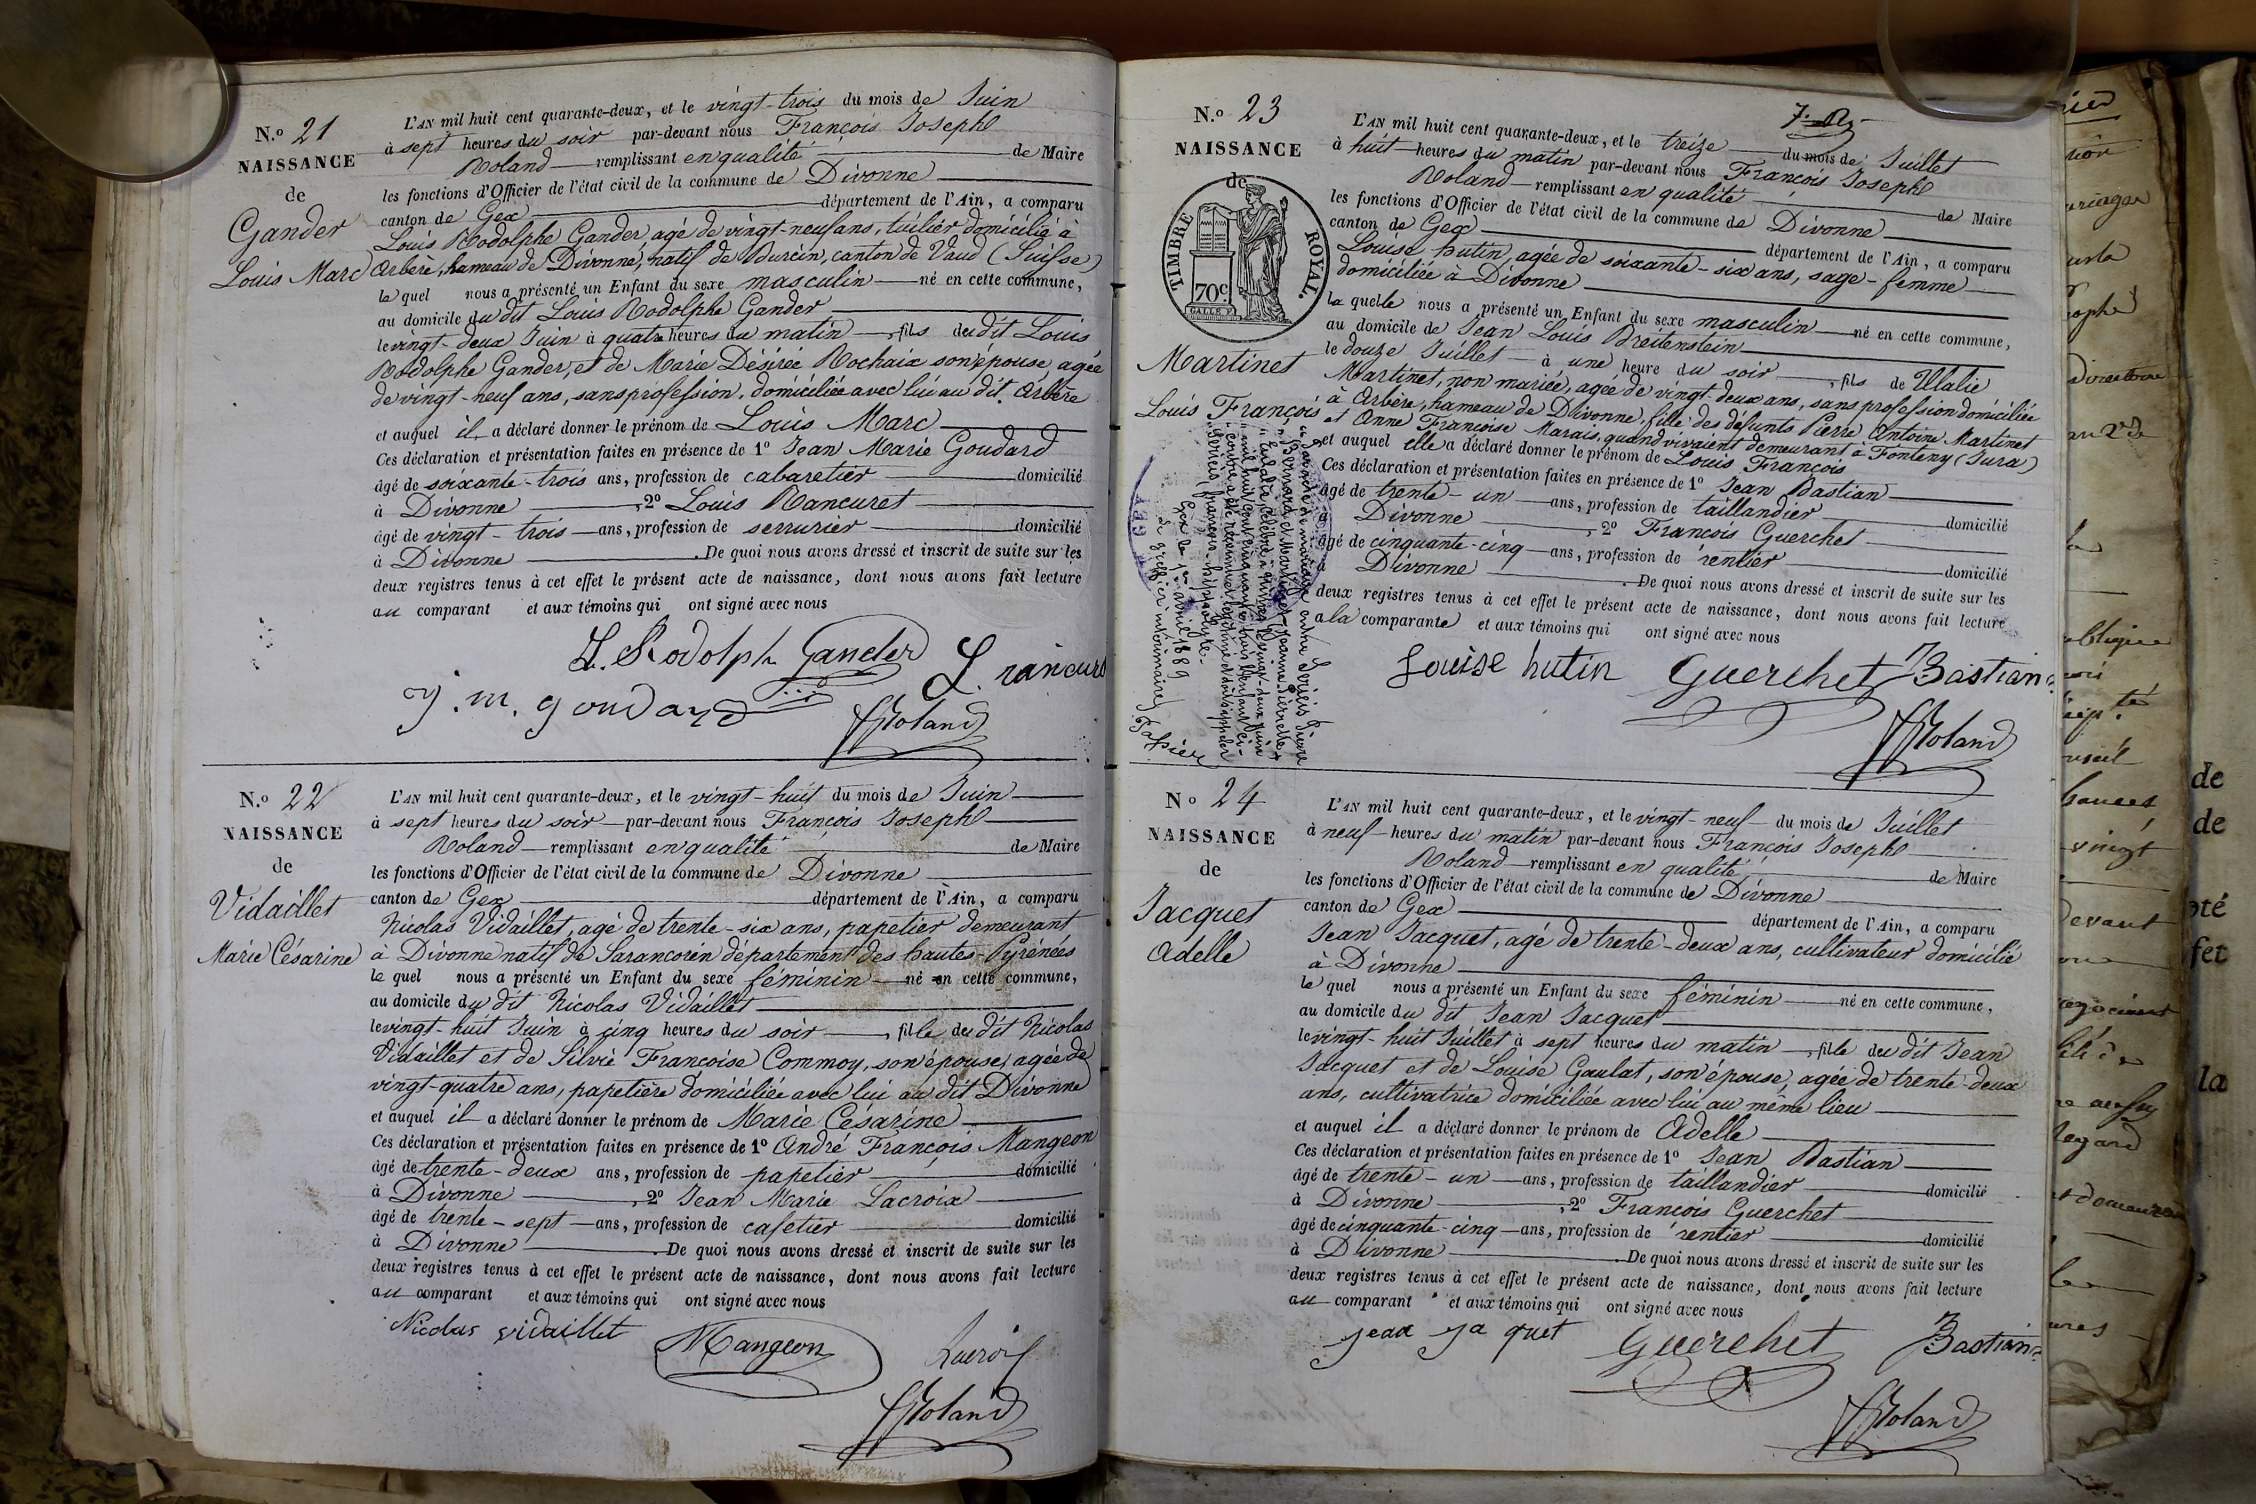 N.º 21
NAISSANCE
de
Gander
Louis Marc
L'AN mil huit cent quarante-deux, et le vingt-trois du mois de Juin
à sept heures du soir par-devant nous François Joseph
Roland remplissant en qualité de Maire
les fonctions d'Officier de l'état civil de la commune de Divonne
canton de Gex département de l'Ain, a comparu
Louis Rodolphe Gander, agé de vingt-neuf ans, tuilier domicilié à
Arbère, hameau de Divonne, natif de Burcin, canton de Vaud (Suisse)
le quel nous a présenté un Enfant du sexe masculin né en cette commune,
au domicile du dit Louis Rodolphe Gander
le vingt-deux Juin à quatre heures du matin, fils du dit Louis
Rodolphe Gander, et de Marie Désirée Rochaix son épouse, agée
de vingt-neuf ans, sans profession, domiciliée avec lui au dit Arbère
et auquel il a déclaré donner le prénom de Louis Marc
Ces déclaration et présentation faites en présence de 1º Jean Marie Goudard
âgé de soixante-trois ans, profession de cabaretier domicilié
à Divonne, 2º Louis Rancuret
âgé de vingt-trois ans, profession de serrurier domicilié
à Divonne. De quoi nous avons dressé et inscrit de suite sur les
deux registres tenus à cet effet le présent acte de naissance, dont nous avons fait lecture
au comparant et aux témoins qui ont signé avec nous
L. Rodolph Gander L. rancure
j. m. goudard
Roland
N.º 22
NAISSANCE
de
Vidaillet
Marie Césarine
L'AN mil huit cent quarante-deux, et le vingt-huit du mois de Juin
à sept heures du soir par-devant nous François Joseph
Roland remplissant en qualité de Maire
les fonctions d'Officier de l'état civil de la commune de Divonne
canton de Gex département de l'Ain, a comparu
Nicolas Vidaillet, agé de trente-six ans, papetier demeurant
à Divonne natif de Sarancorin département des hautes Pyrénées
le quel nous a présenté un Enfant du sexe féminin né en cette commune,
au domicile du dit Nicolas Vidaillet
le vingt-huit Juin à cinq heures du soir, fille du dit Nicolas
Vidaillet et de Silvie Francoise Commoy, son épouse, agée de
vingt-quatre ans, papetière domiciliée avec lui au dit Divonne
et auquel il a déclaré donner le prénom de Marie Césarine
Ces déclaration et présentation faites en présence de 1º André François Mangeon
âgé de trente-deux ans, profession de papetier domicilié
à Divonne, 2º Jean Marie Lacroix
âgé de trente-sept ans, profession de cafetier domicilié
à Divonne. De quoi nous avons dressé et inscrit de suite sur les
deux registres tenus à cet effet le présent acte de naissance, dont nous avons fait lecture
au comparant et aux témoins qui ont signé avec nous
Nicolas vidaillet Mangeon Lacroix
Roland
N.º 23
NAISSANCE
de
TIMBRE ROYAL.
70c
Martinet
Louis François
L'AN mil huit cent quarante-deux, et le treize du mois de Juillet
à huit heures du matin par-devant nous François Joseph
Roland remplissant en qualité de Maire
les fonctions d'Officier de l'état civil de la commune de Divonne
canton de Gex département de l'Ain, a comparu
Louise hutin, agée de soixante-six ans, sage-femme
domiciliée à Divonne
la quelle nous a présenté un Enfant du sexe masculin né en cette commune,
au domicile de Jean Louis Breitenstein
le douze Juillet à une heure du soir, fils de Ulalie
Martinet, non mariée, agée de vingt-deux ans, sans profession domiciliée
à Arbère, hameau de Divonne, fille des défunts Pierre Antoine Martinet
et Anne Françoise Marais, quand vivaient demeurant à Fonteny (Jura)
et auquel elle a déclaré donner le prénom de Louis François
Ces déclaration et présentation faites en présence de 1º Jean Bastian
âgé de trente-un ans, profession de taillandier domicilié
à Divonne, 2º François Guerchet
âgé de cinquante-cinq ans, profession de rentier domicilié
à Divonne. De quoi nous avons dressé et inscrit de suite sur les
deux registres tenus à cet effet le présent acte de naissance, dont nous avons fait lecture
a la comparante et aux témoins qui ont signé avec nous
Louise hutin Guerchet JBastian
Roland
Gex le 1er avril 1889
Le greffier intérimaire
N.º 24
NAISSANCE
de
Jacquet
Adelle
L'AN mil huit cent quarante-deux, et le vingt-neuf du mois de Juillet
à neuf heures du matin par-devant nous François Joseph
Roland remplissant en qualité de Maire
les fonctions d'Officier de l'état civil de la commune de Divonne
canton de Gex département de l'Ain, a comparu
Jean Jacquet, agé de trente-deux ans, cultivateur domicilié
à Divonne
le quel nous a présenté un Enfant du sexe féminin né en cette commune,
au domicile du dit Jean Jacquet
le vingt-huit Juillet à sept heures du matin, fille du dit Jean
Jacquet et de Louise Gaulat, son épouse, agée de trente-deux
ans, cultivatrice domiciliée avec lui au même lieu
et auquel il a déclaré donner le prénom de Adelle
Ces déclaration et présentation faites en présence de 1º Jean Bastian
âgé de trente-un ans, profession de taillandier domicilié
à Divonne, 2º François Guerchet
âgé de cinquante-cinq ans, profession de rentier domicilié
à Divonne. De quoi nous avons dressé et inscrit de suite sur les
deux registres tenus à cet effet le présent acte de naissance, dont nous avons fait lecture
au comparant et aux témoins qui ont signé avec nous
jean jaquet Guerchet JBastian
Roland